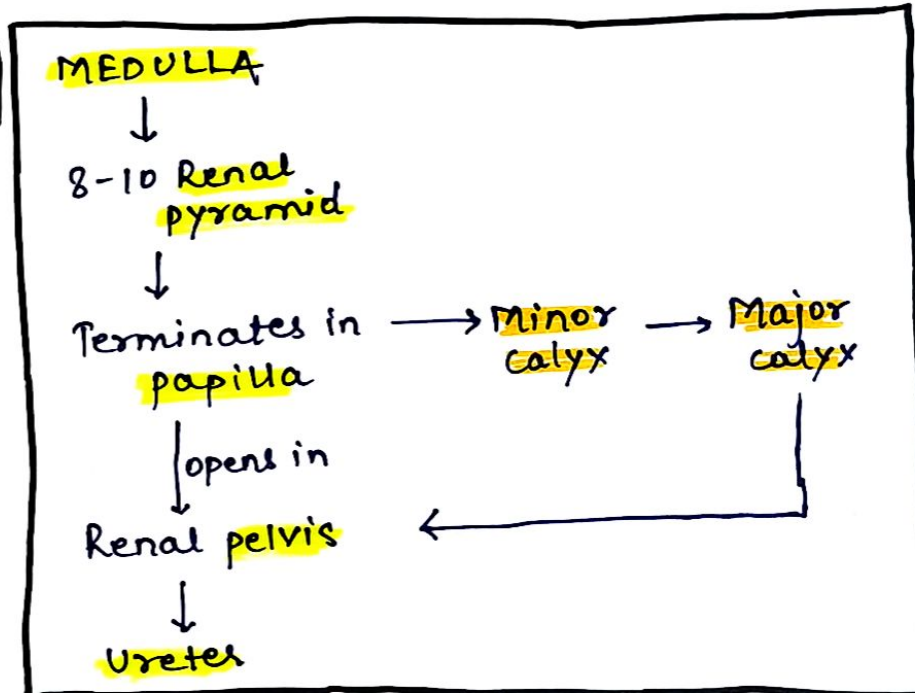 MEDULLA
8-10 Renal
pyramid
Terminates in → Minor → Major
papilla calyx calyx
opens in
Renal pelvis
Ureter